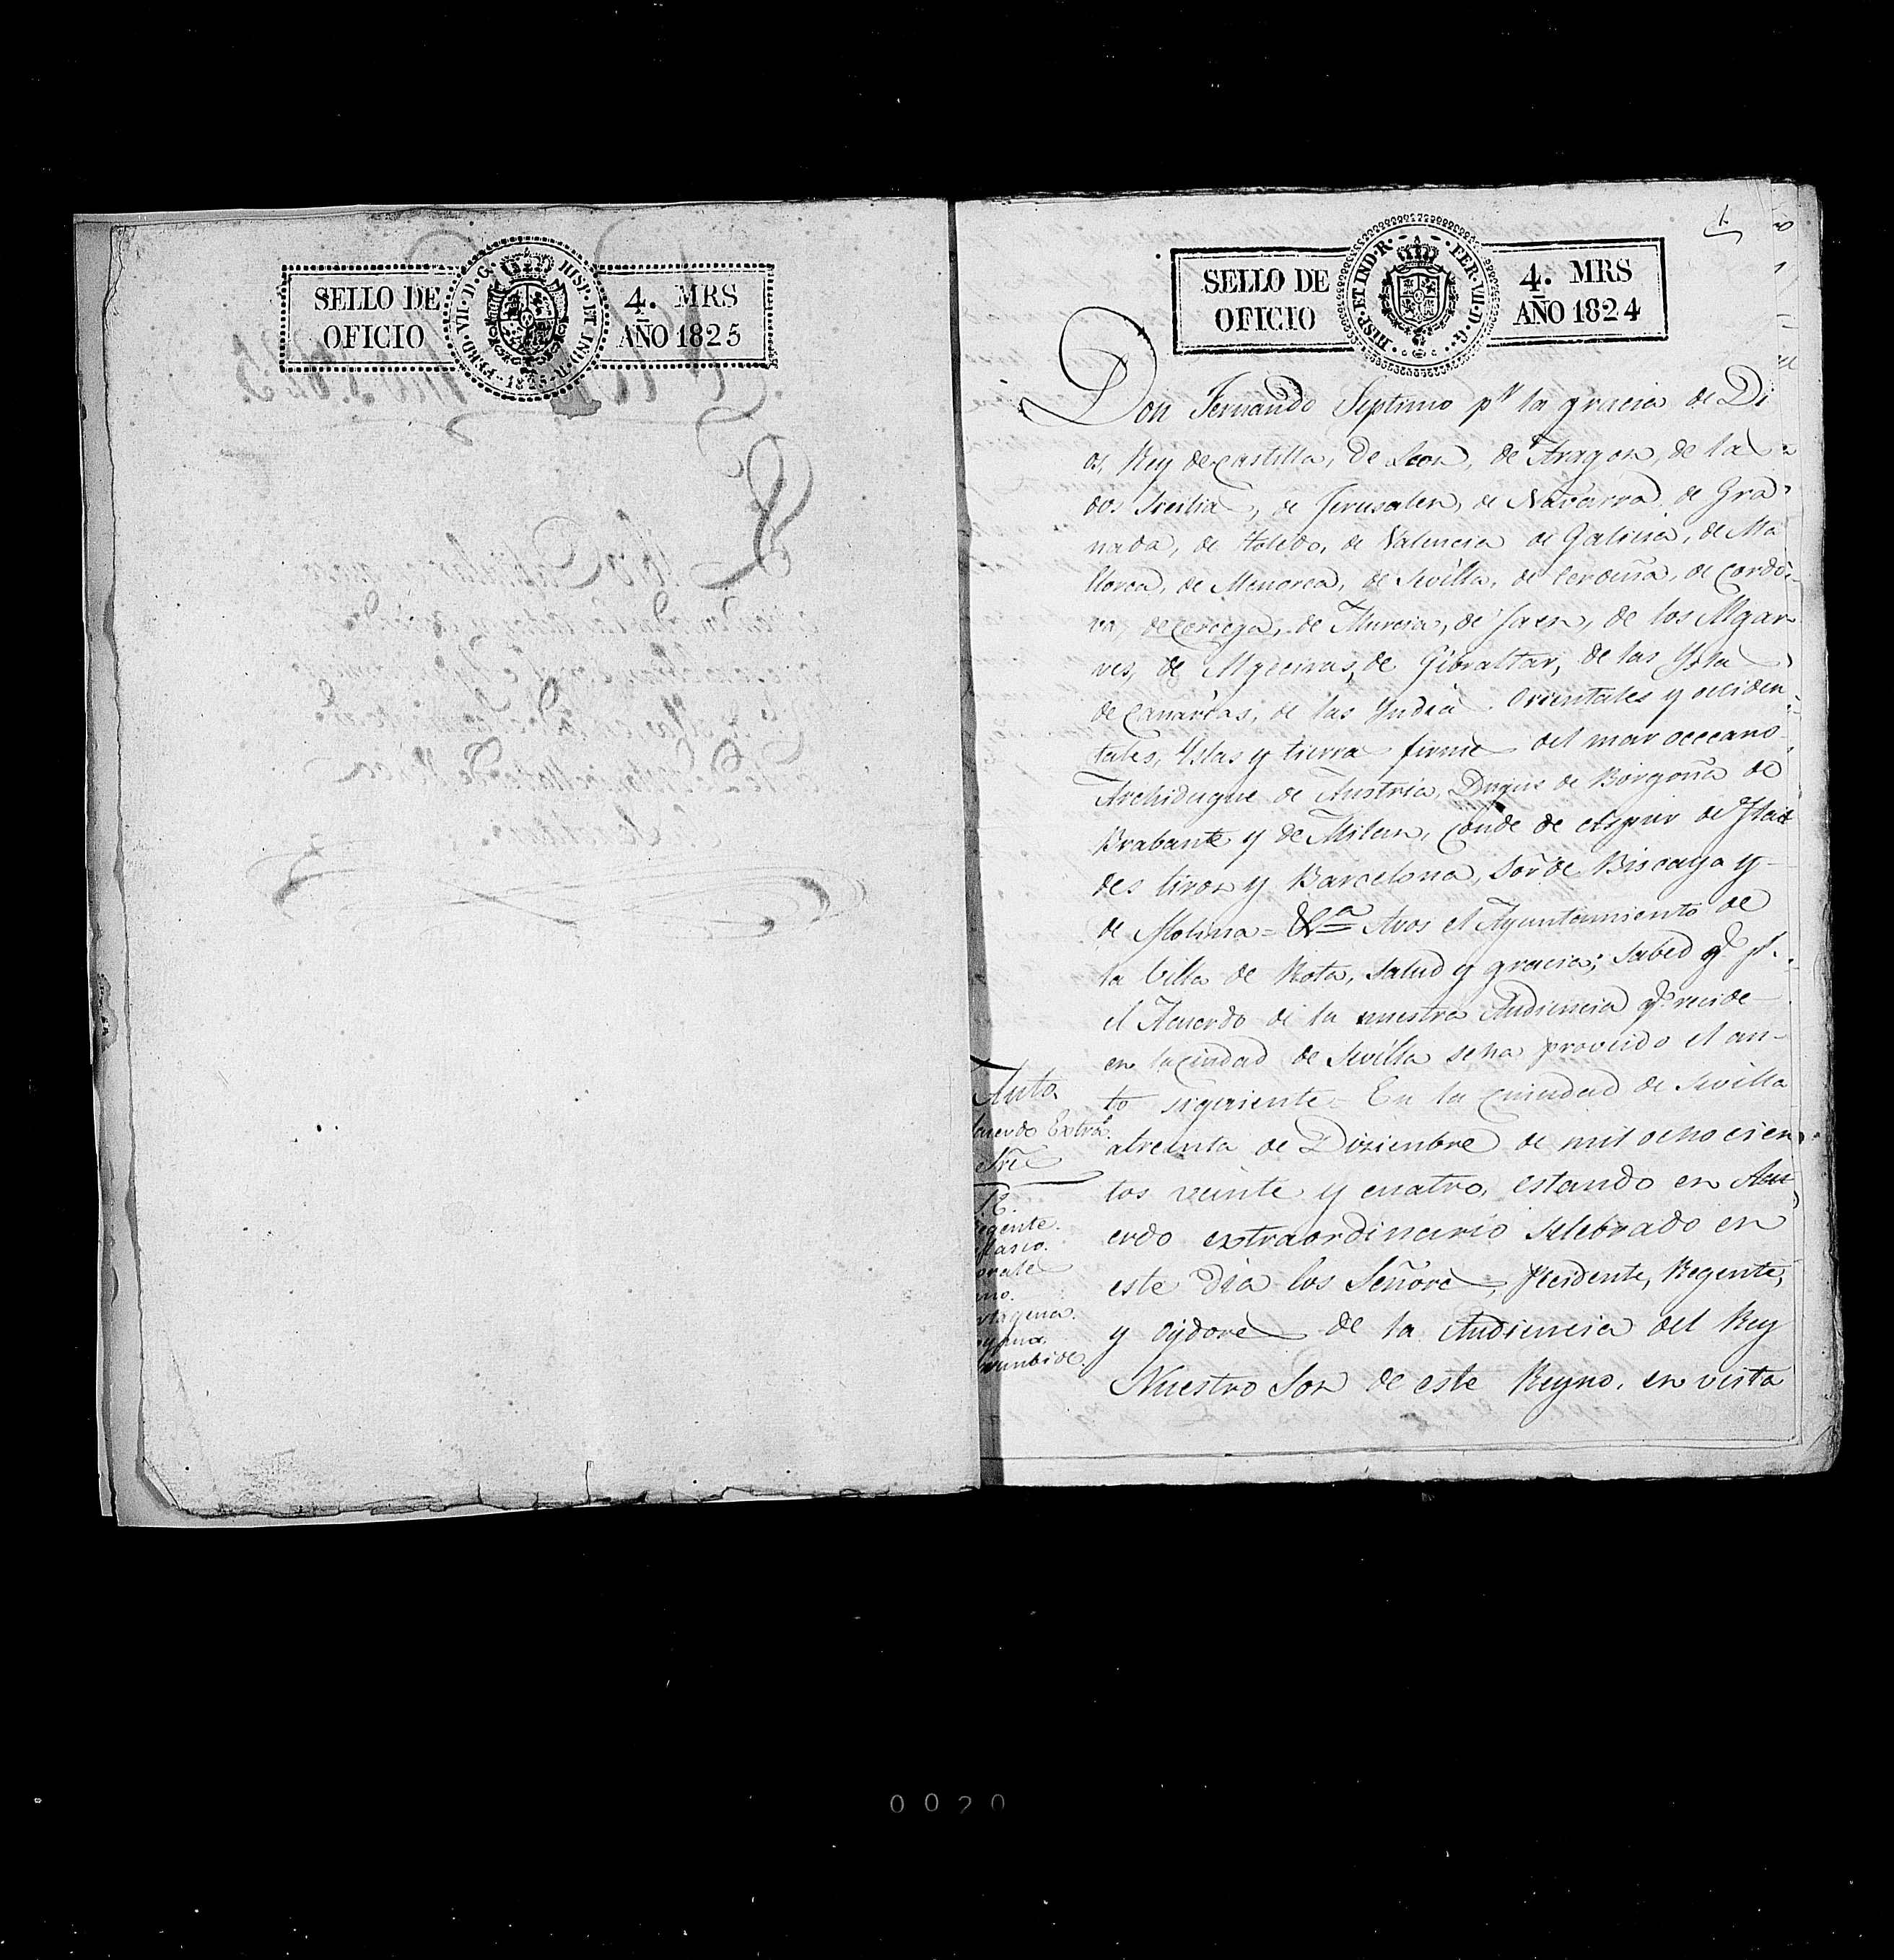 SELLO DE
OFICIO
FERD·VII·D·G· HISP·ET IND·R· 1825
4. MRS
AÑO 1825
1.
SELLO DE
OFICIO
FER·VII·D·G· HISP·ET IND·R·
4. MRS
AÑO 1824
Don Fernando Septimo pr la gracia de Di
os, Rey de Castilla, de Leon, de Aragon, de las
dos Sicilias, de Jerusalen, de Navarra, de Gra
nada, de Toledo, de Valencia de Galicia, de Ma
llorca, de Menorca, de Sevilla, de Cerdeña, de Cordo
va, de Corcega, de Murcia, de Jaen, de los Algar
ves, de Algeciras, de Gibraltar, de las Yslas
de Canarias, de las Yndias Orientales y occiden
tales, Yslas y tierra firme del mar occeano
Archiduque de Austria, Duque de Borgoña de
Brabante y de Milan, Conde de Aspur de Flan
des tirol y Barcelona, Sor de Biscaya y
de Molina = &a Avos el Ayuntamiento de
la Villa de Rota, Salud y gracia; Sabed q. pr.
el Acuerdo de la nuestra Audiencia q. recide
en la Ciudad de Sevilla seha proveido el au-
to siguiente = En la Ciudad de Sevilla
atreinta de Diziembre de mil ochocien
tos veinte y cuatro, estando en Acu
erdo extraordinario selebrado en
este dia los Señores, Precidente, Regente,
y Oydores de la Audiencia del Rey
Nuestro Sor de este Reyno, en vista
Auto
cuerdo Extrao.
Sres
P. E.
egente.
lasio.
orales
no.
rtagena.
0020